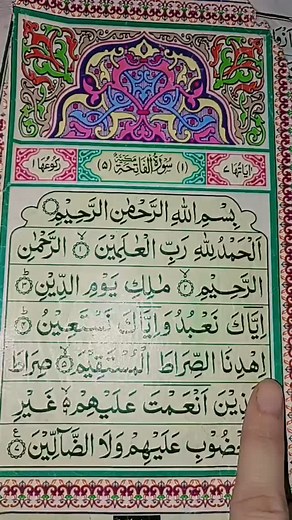 اٰیَاتُهَا ٧ (١) سُوْرَةُ الْفَاتِحَةِ مَكِّيَّةٌ (٥) رُكُوْعُهَا ١
بِسْمِ اللّٰهِ الرَّحْمٰنِ الرَّحِیْمِ
اَلْحَمْدُ لِلّٰهِ رَبِّ الْعٰلَمِیْنَ ۙ﴿١﴾ الرَّحْمٰنِ
الرَّحِیْمِ ۙ﴿٢﴾ مٰلِكِ یَوْمِ الدِّیْنِ ؕ﴿٣﴾
اِیَّاكَ نَعْبُدُ وَ اِیَّاكَ نَسْتَعِیْنُ ؕ﴿٤﴾
اِهْدِنَا الصِّرَاطَ الْمُسْتَقِیْمَ ۙ﴿٥﴾ صِرَاطَ
الَّذِیْنَ اَنْعَمْتَ عَلَیْهِمْ ۙ﴿٦﴾ غَیْرِ
الْمَغْضُوْبِ عَلَیْهِمْ وَلَا الضَّآلِّیْنَ ﴿٧﴾